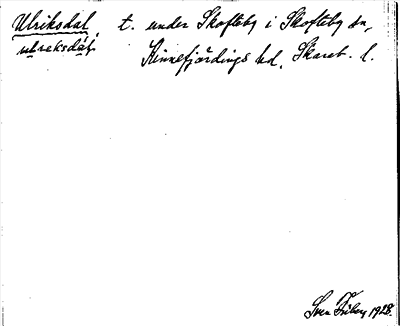 Ulriksdal, t. under Skofteby i Skofteby sn,
ulreksdal. Kinnefjärdings hd. Skarab. l.
Sven Friberg 1928.